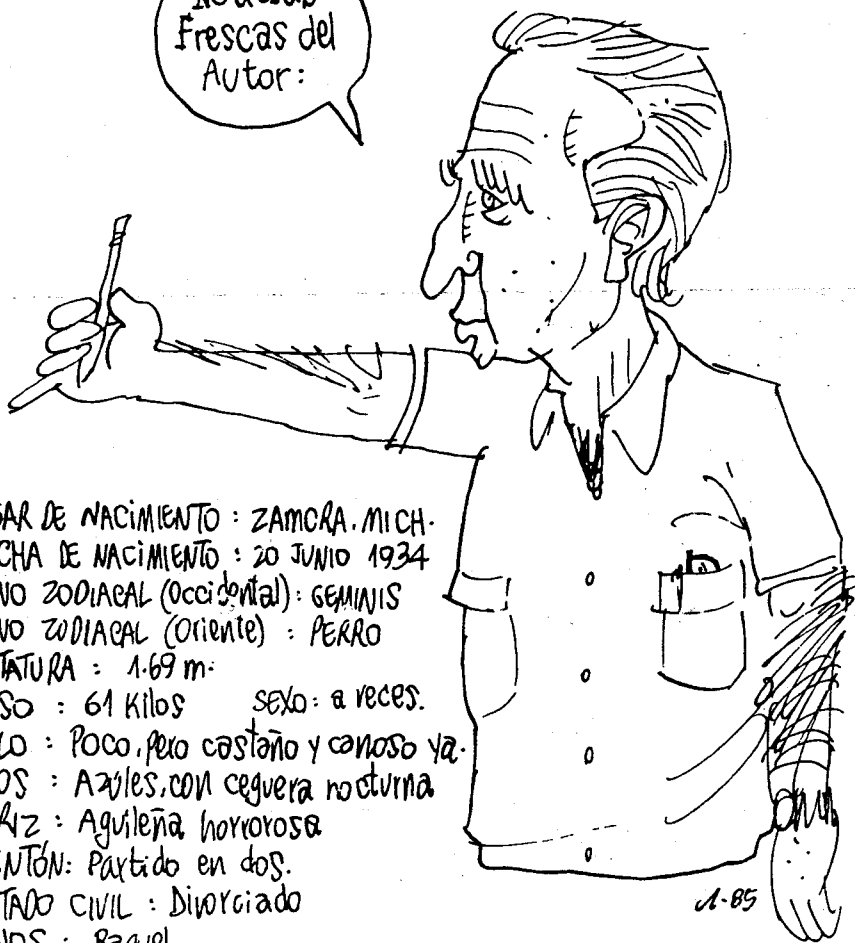 Frescas del
Autor:
GAR DE NACIMIENTO : ZAMORA. MICH.
CHA DE NACIMIENTO : 20 JUNIO 1934
NO ZODIACAL (Occidental) : GEMINIS
NO ZODIACAL (Oriente) : PERRO
TATURA : 1.69 m.
SO : 61 Kilos SEXO: a veces.
LO : Poco, pero castaño y canoso ya.
OS : Azules, con ceguera nocturna
RIZ : Aguileña horrorosa
ENTÓN: Partido en dos.
TADO CIVIL : Divorciado
1-85